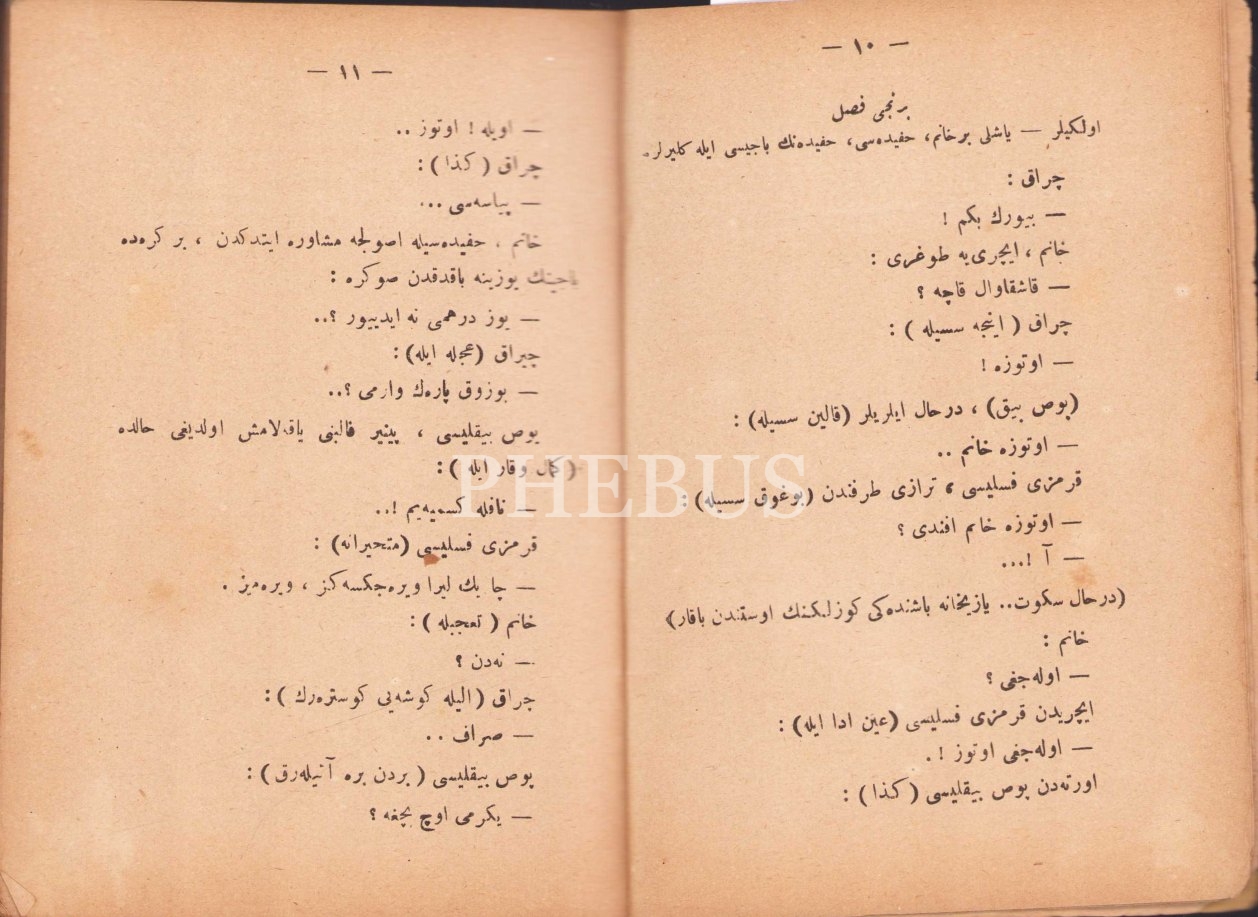 — ١٠ —
برنجی فصل
اولکیلر — یاشلی برخانم، حفیده‌سی، حفیده‌نك باجیسی ایله کلیرلر.
چراق :
— بیورك بکم !
خانم ، ایچری‌یه طوغری :
— قاشقاوال قاچه ؟
چراق ( اینجه سسیله ) :
— اوتوزه !
(پوص بیق) ، درحال ایلریلر (قالین سسیله) :
— اوتوزه خانم ..
قرمزی فسلیسی ، ترازی طرفندن (بوغوق سسیله) :
— اوتوزه خانم افندی ؟
— آ !...
(درحال سکوت.. یازیخانه باشنده‌کی کوزلکنك اوستندن باقار)
خانم :
— اوله‌جغی ؟
ایچریدن قرمزی فسلیسی (عین ادا ایله) :
— اوله‌جغی اوتوز !.
اورته‌دن پوص بیقلیسی ( کذا ) :
— ١١ —
— اویله ! اوتوز ..
چراق ( کذا ) :
— پیاسه‌سی ...
خانم ، حفیده‌سیله اصولجه مشاوره ایتدکدن ، بر کره‌ده
باجینك یوزینه باقدقدن صوکره :
— یوز درهمی نه ایدییور ؟..
چیراق (عجله ایله) :
— بوزوق پاره‌ك وارمی ؟..
پوص بیقلیسی ، پینیر قالبنی یاقه‌لامش اولدیغی حالده
( کمال وقار ایله ) :
— نافله کسمیه‌یم !..
قرمزی فسلیسی (متحیرانه) :
— چا یك لیرا ویره‌جکسه‌کز ، ویره‌میز .
خانم ( تعجبله ) :
— نه‌دن ؟
چراق ( الیله کوشه‌یی کوستره‌رك ) :
— صراف ..
پوص بیقلیسی ( بردن بره آتیله‌رق ) :
— یکرمی اوچ بچغه ؟
PHEBUS